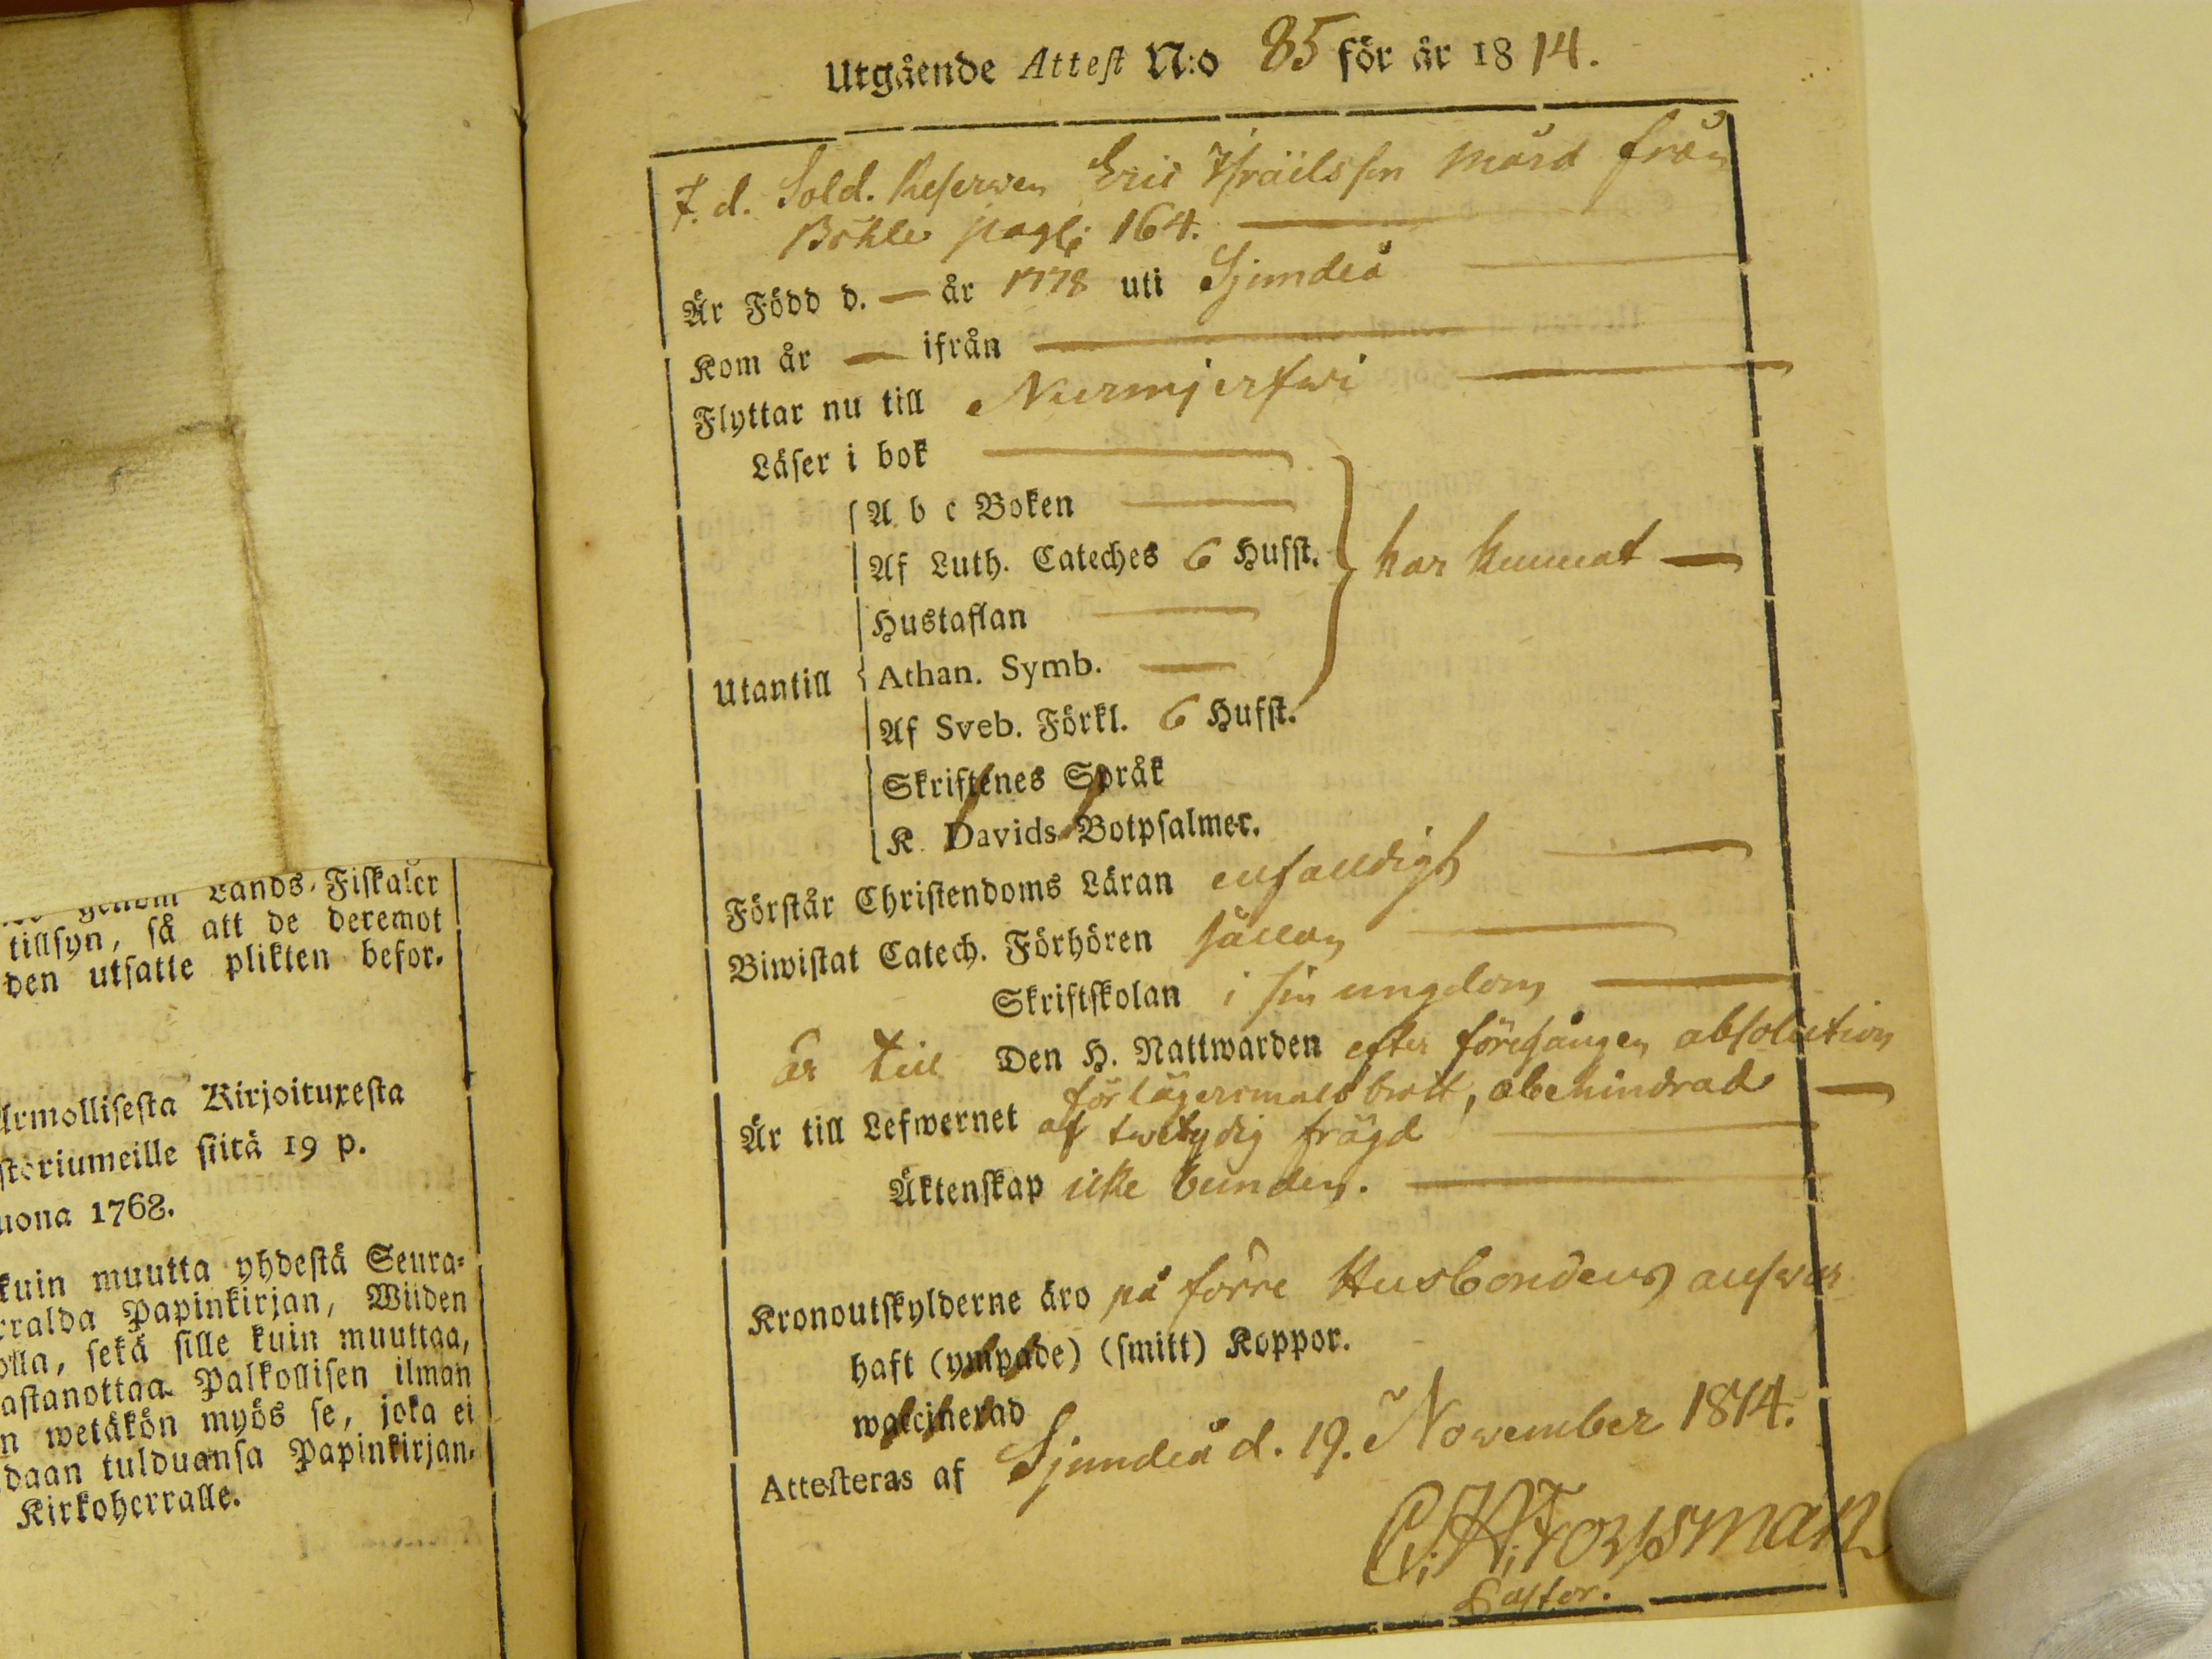 Lands-Fiskaler
tillsyn, så att de deremot
den utsatte plikten befor.
Armollisesta Kirjoituxesta
storiumeille siitä 19 p.
uona 1768.
kuin muutta yhdestä Seura-
rralda Papinkirjan, Wiiden
olla, sekä sille kuin muuttaa,
astanottaa Palkollisen ilman
n wetäkön myös se, joka ei
daan tulduansa Papinkirjan,
Kirkoherralle.
Utgående Attest N:o 85 för år 1814.
F. d. Sold. Reserven Eric Israëlsson Mård från
Böhle pag: 164.
Är Född d. — år 1778 uti Sjundeå
Kom år — ifrån
Flyttar nu till Nurmjerfwi
Läser i bok
A b c Boken
Af Luth. Cateches 6 Hufst. har kunnat
Hustaflan
Utantill Athan. Symb.
Af Sveb. Förkl. 6 Hufst.
Skriftenes Språk
K. Davids Botpsalmer.
Förstår Christendoms Läran enfalldigt
Biwistat Catech. Förhören sällan
Skriftskolan i sin ungdom
är till Den H. Nattwarden efter föregången absolution
för lägersmåls brott, obehindrad
Är till Lefwernet af twetydig frägd
Äktenskap icke bunden.
Kronoutskylderne äro på förre Husbondens answar
haft (ympade) (smitt) Koppor.
waccinerad
Attesteras af Sjundeå d. 19. November 1814.
C. H. Forssman
Pastor.